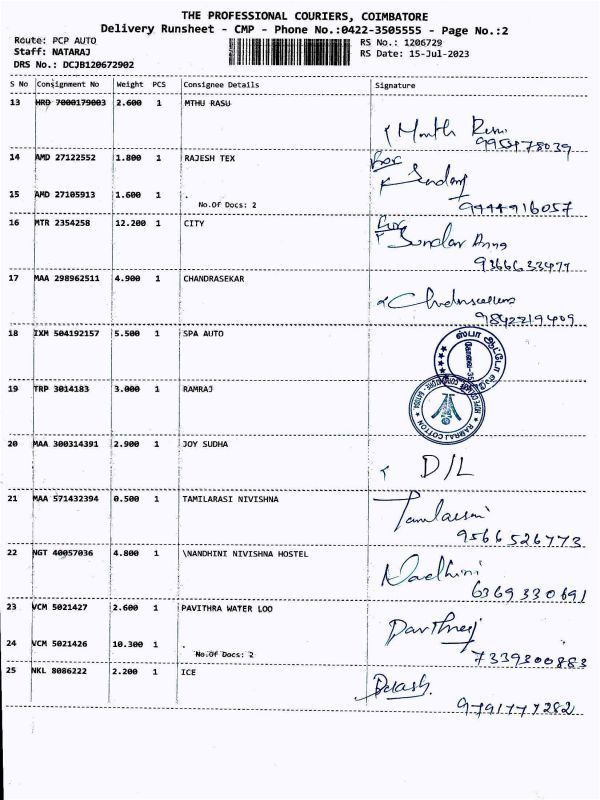 THE PROFESSIONAL COURIERS, COIMBATORE
Delivery Runsheet - CMP - Phone No.:0422-3505555 - Page No.:2
Route: PCP AUTO
RS No.: 1206729
Staff: NATARAJ
RS Date: 15-Jul-2023
DRS No.: DCJB120672902
S No Consignment No Weight PCS Consignee Details Signature
13 HRD 7000179003 2.600 1 MTHU RASU
14 AMD 27122552 1.800 1 RAJESH TEX
for
15 AMD 27105913 1.600 1 .
No.Of Docs: 2
9444916057
16 MTR 2354258 12.200 1 CITY
for
Sundar Anna
9366633477
17 MAA 298962511 4.900 1 CHANDRASEKAR
9842219409
18 IXM 504192157 5.500 1 SPA AUTO
ஸ்பா ஆட்டோ
19 TRP 3014183 3.000 1 RAMRAJ
RAMRAJ COTTON
20 MAA 300314391 2.900 1 JOY SUDHA
D/L
21 MAA 571432394 0.500 1 TAMILARASI NIVISHNA
9566526773
22 NGT 40057036 4.800 1 \NANDHINI NIVISHNA HOSTEL
Nadhini
6369330691
23 VCM 5021427 2.600 1 PAVITHRA WATER LOO
24 VCM 5021426 10.300 1 .
No.Of Docs: 2
7339300883
25 NKL 8086222 2.200 1 ICE
9791777282